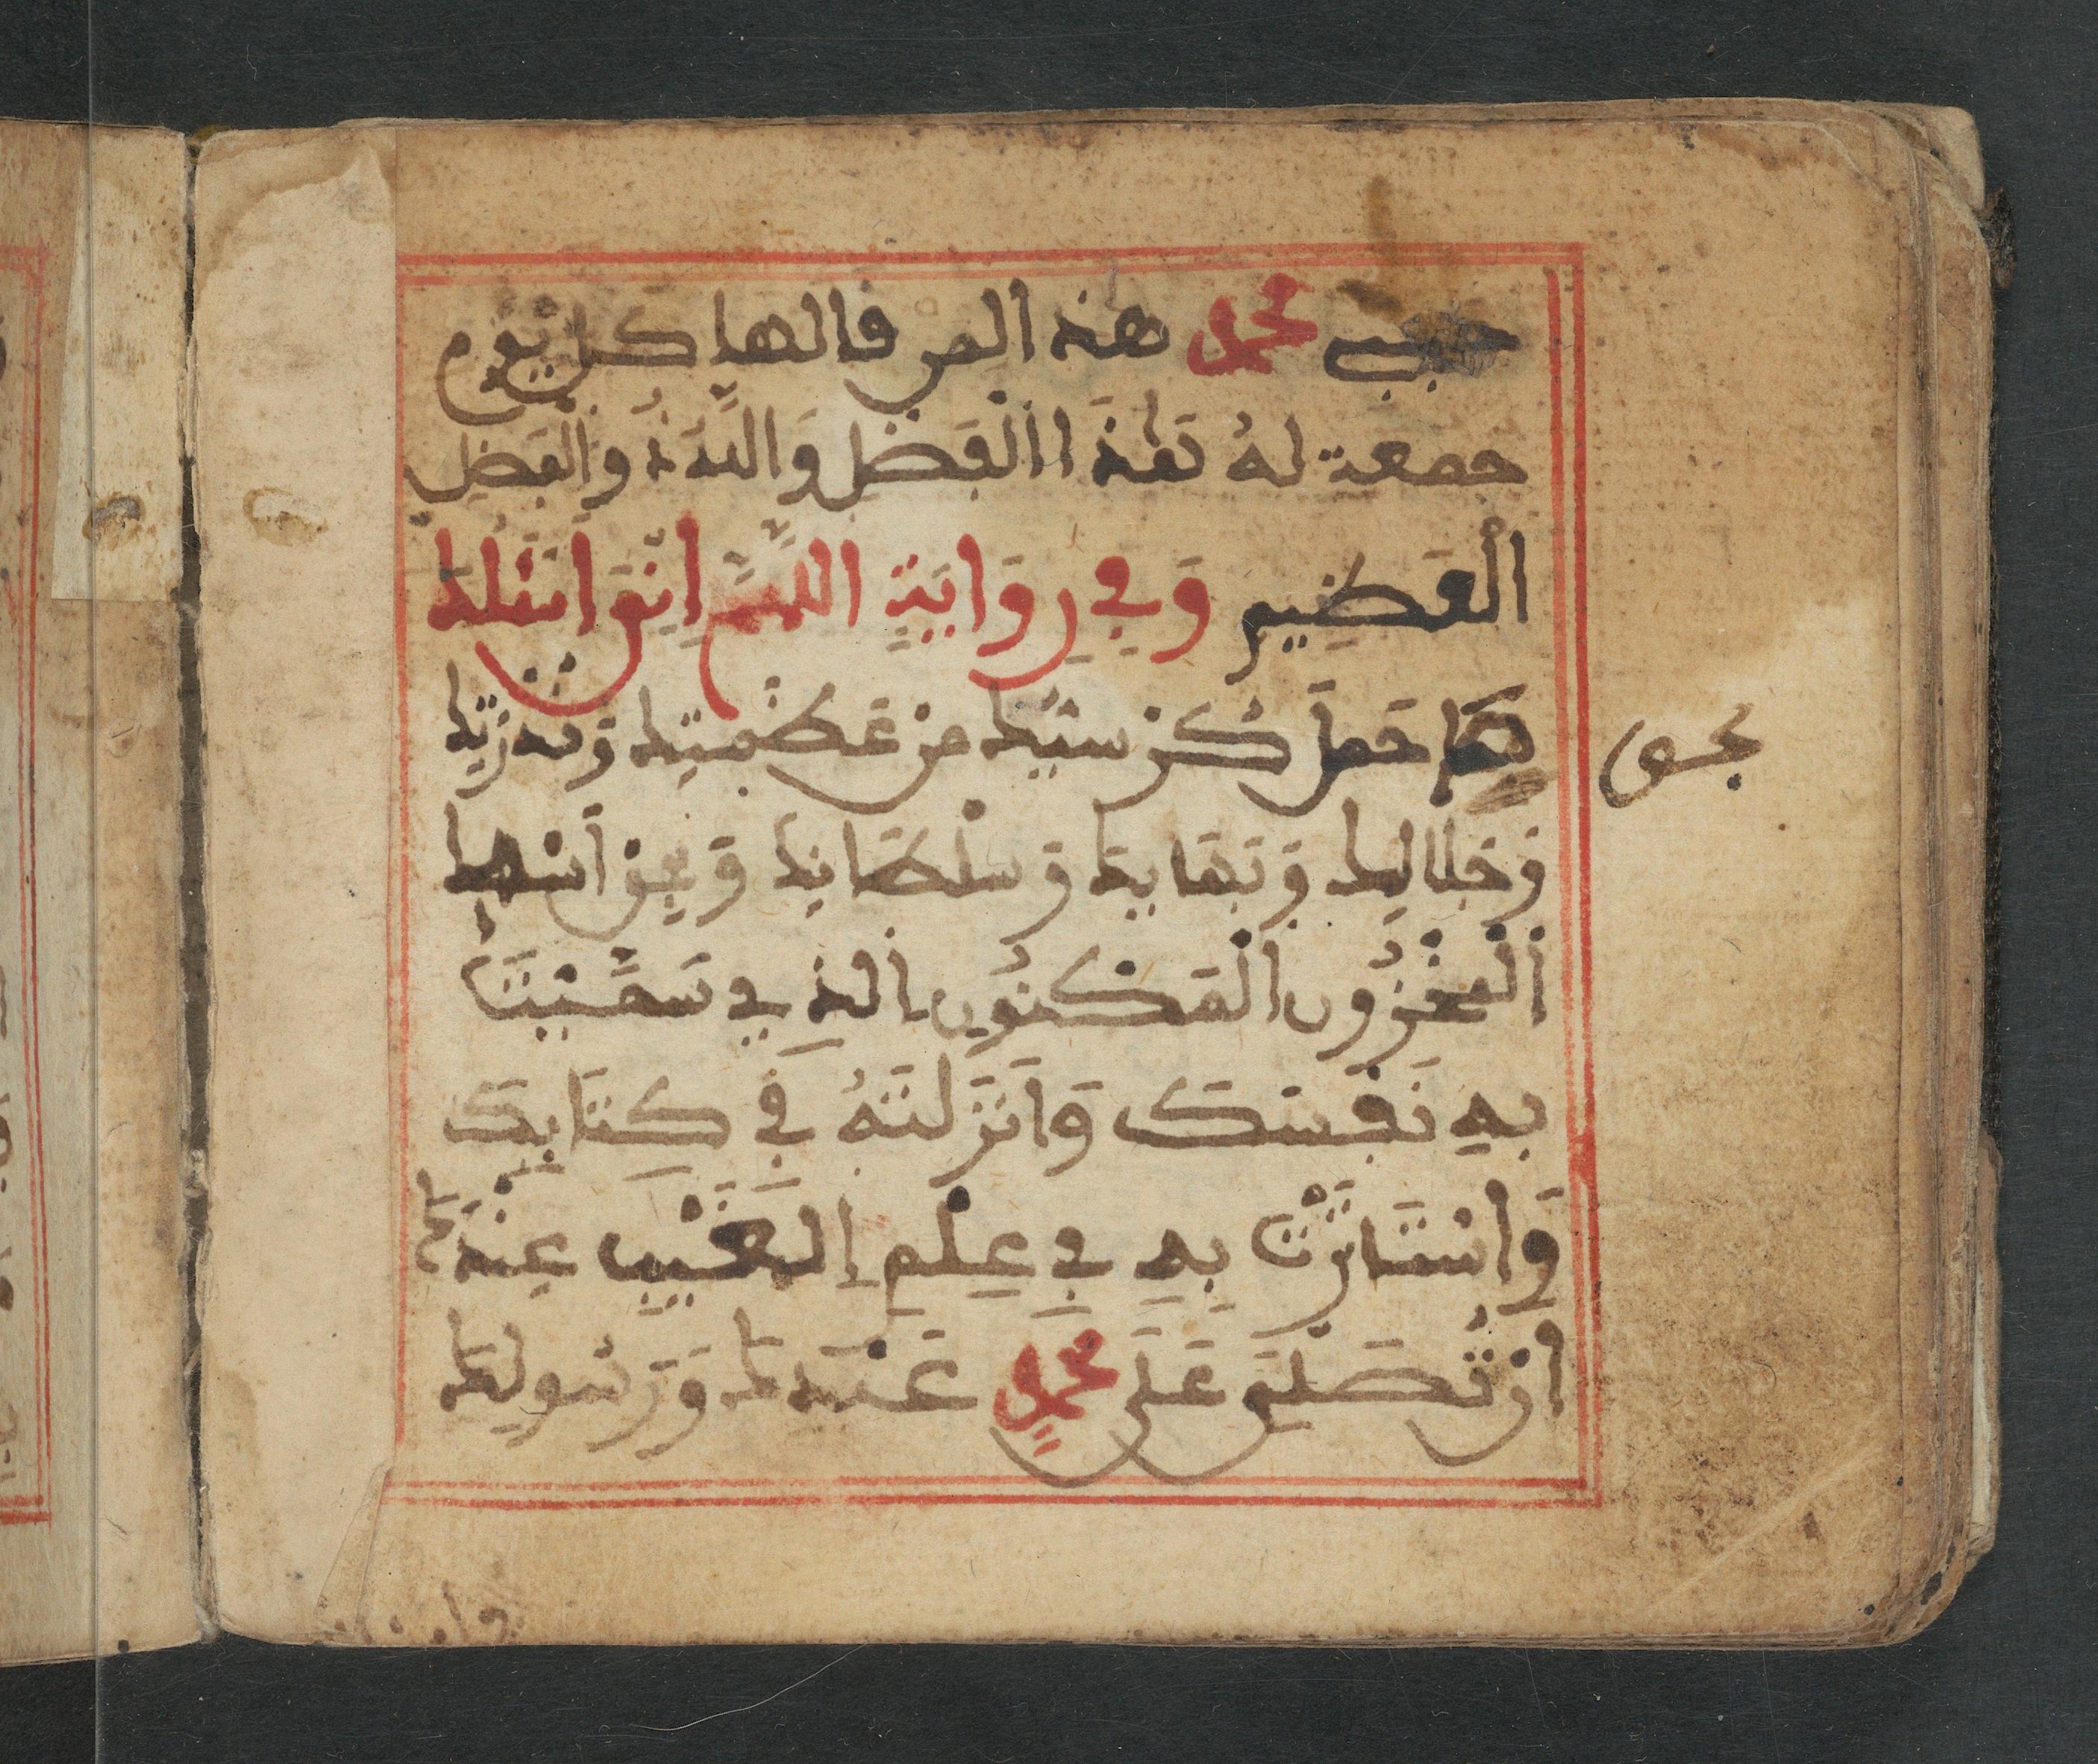 حبيبي محمد هذه المن قالها كل يوم
جمعة له هذا الفضل والله ذو الفضل
العظيم وفي رواية اللهم اني اسئلك
بما حمل كرسيك من عظمتك وقدرتك
بحق
وجلالك وبهائك وسلطانك وبحق اسمك
المخزون المكنون الذي سميت
به نفسك وانزلته في كتابك
واستاثرت به في علم الغيب عندك
ان تصلي على محمد عبدك ورسولك
وا